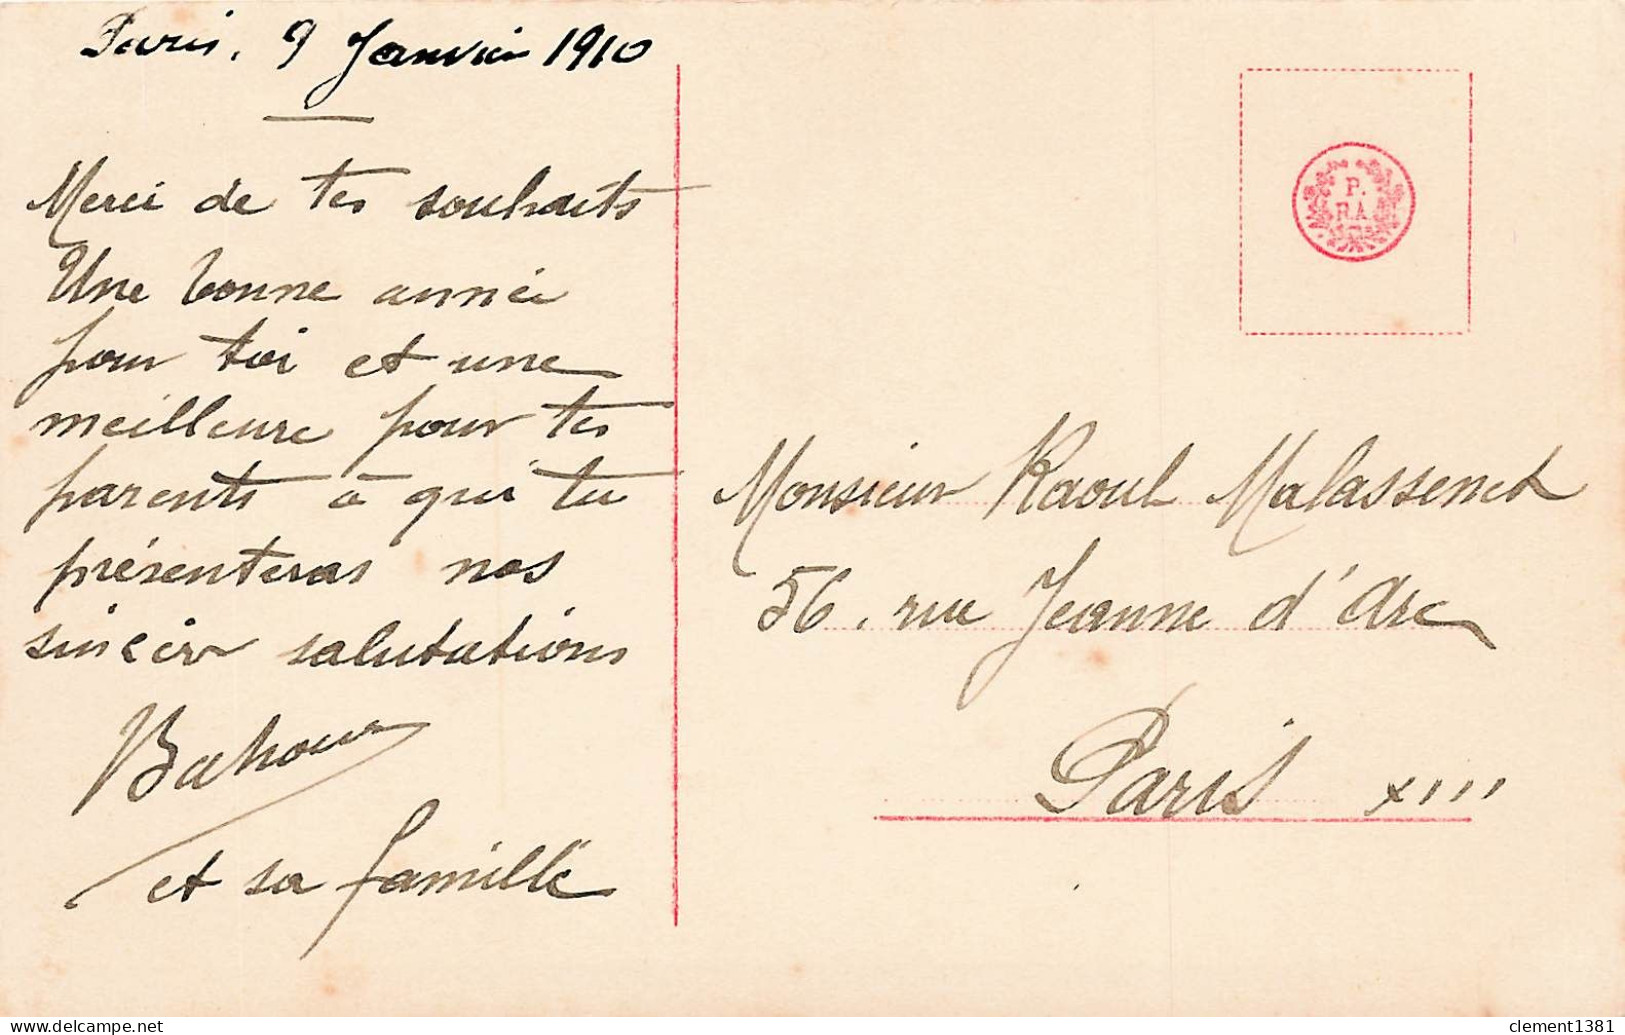 Paris, 9 Janvier 1910
Merci de tes souhaits
Une bonne année
pour toi et une
meilleure pour tes
parents à qui tu
présenteras nos
sincèr salutations
et sa famille
P.
R.A.
Monsieur Raoul Malassenet
56, rue Jeanne d'Arc
Paris XIII
clement1381